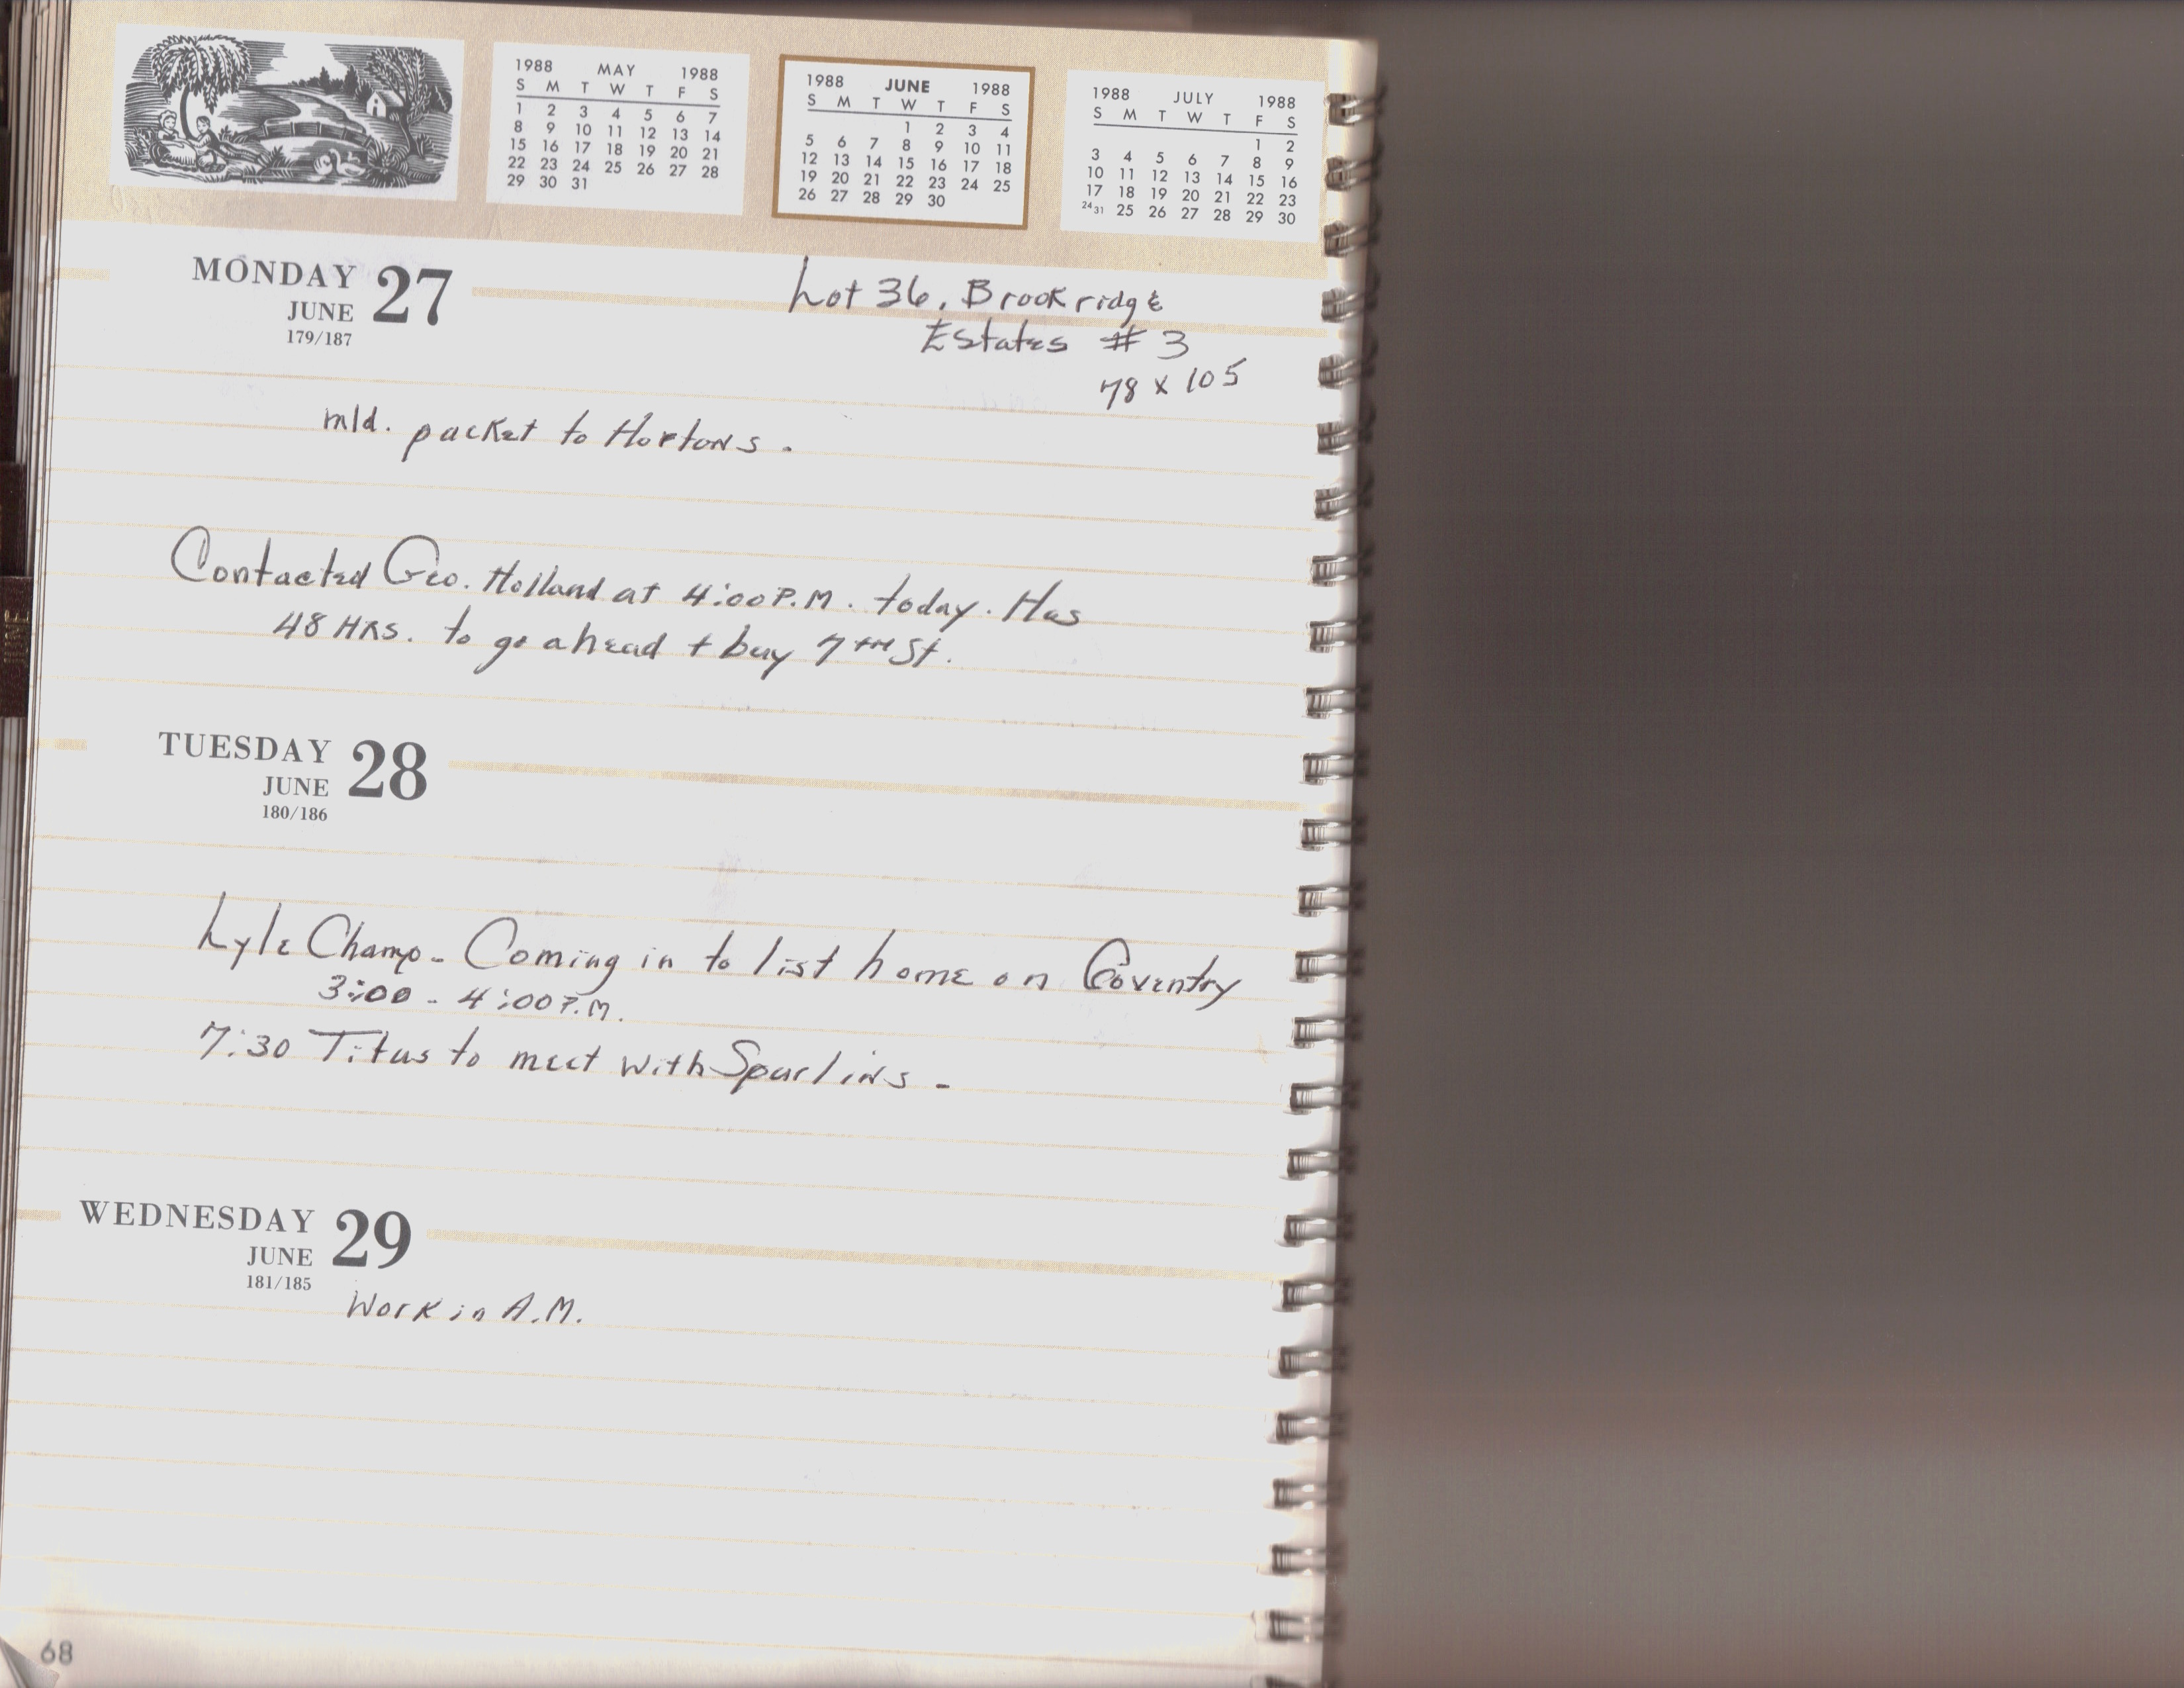 1988 MAY 1988
S M T W T F S
1 2 3 4 5 6 7
8 9 10 11 12 13 14
15 16 17 18 19 20 21
22 23 24 25 26 27 28
29 30 31
1988 JUNE 1988
S M T W T F S
1 2 3 4
5 6 7 8 9 10 11
12 13 14 15 16 17 18
19 20 21 22 23 24 25
26 27 28 29 30
1988 JULY 1988
S M T W T F S
1 2
3 4 5 6 7 8 9
10 11 12 13 14 15 16
17 18 19 20 21 22 23
24 31 25 26 27 28 29 30
MONDAY 27
JUNE
179/187
Lot 36, Brookridge
Estates # 3
78 x 105
mld. packet to Hortons.
Contacted Geo. Holland at 4:00 P.M. today. Has
48 HRS. to go ahead + buy 7TH St.
TUESDAY 28
JUNE
180/186
Lyle Champ - Coming in to list home on Coventry
3:00 - 4:00 P.M.
7:30 Titus to meet with Spurlins -
WEDNESDAY 29
JUNE
181/185
Work in A.M.
JUNE
68